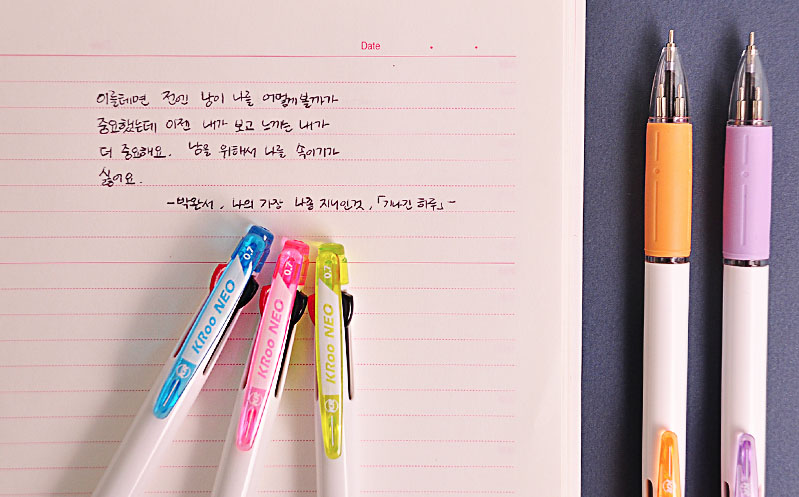 Date
이를테면 전엔 남이 나를 어떻게 볼까가
중요했는데 이젠 내가 보고 느끼는 내가
더 중요해요. 남을 위해서 나를 속이기가
싫어요.
-박완서, 나의 가장 나종 지니인것, 「기나긴 하루」-
0.7 KRoo NEO
0.7 KRoo NEO
0.7 KRoo NEO